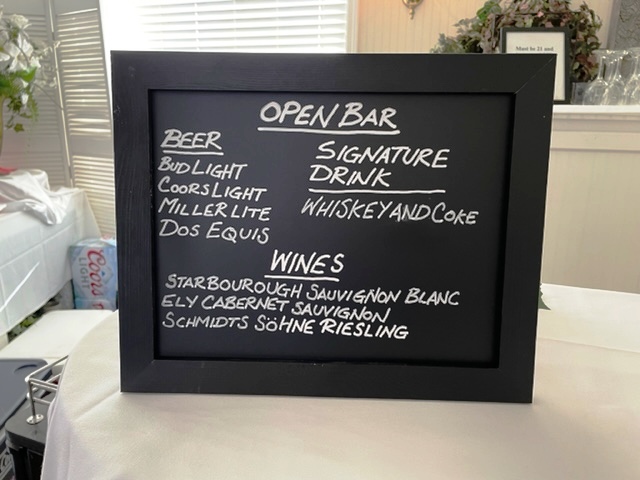 OPEN BAR
BEER
BUD LIGHT
COORS LIGHT
MILLER LITE
DOS EQUIS
SIGNATURE
DRINK
WHISKEY AND COKE
WINES
STARBOUROUGH SAUVIGNON BLANC
ELY CABERNET SAUVIGNON
SCHMIDTS SÖHNE RIESLING
Must be 21 and
Coors
LIGHT